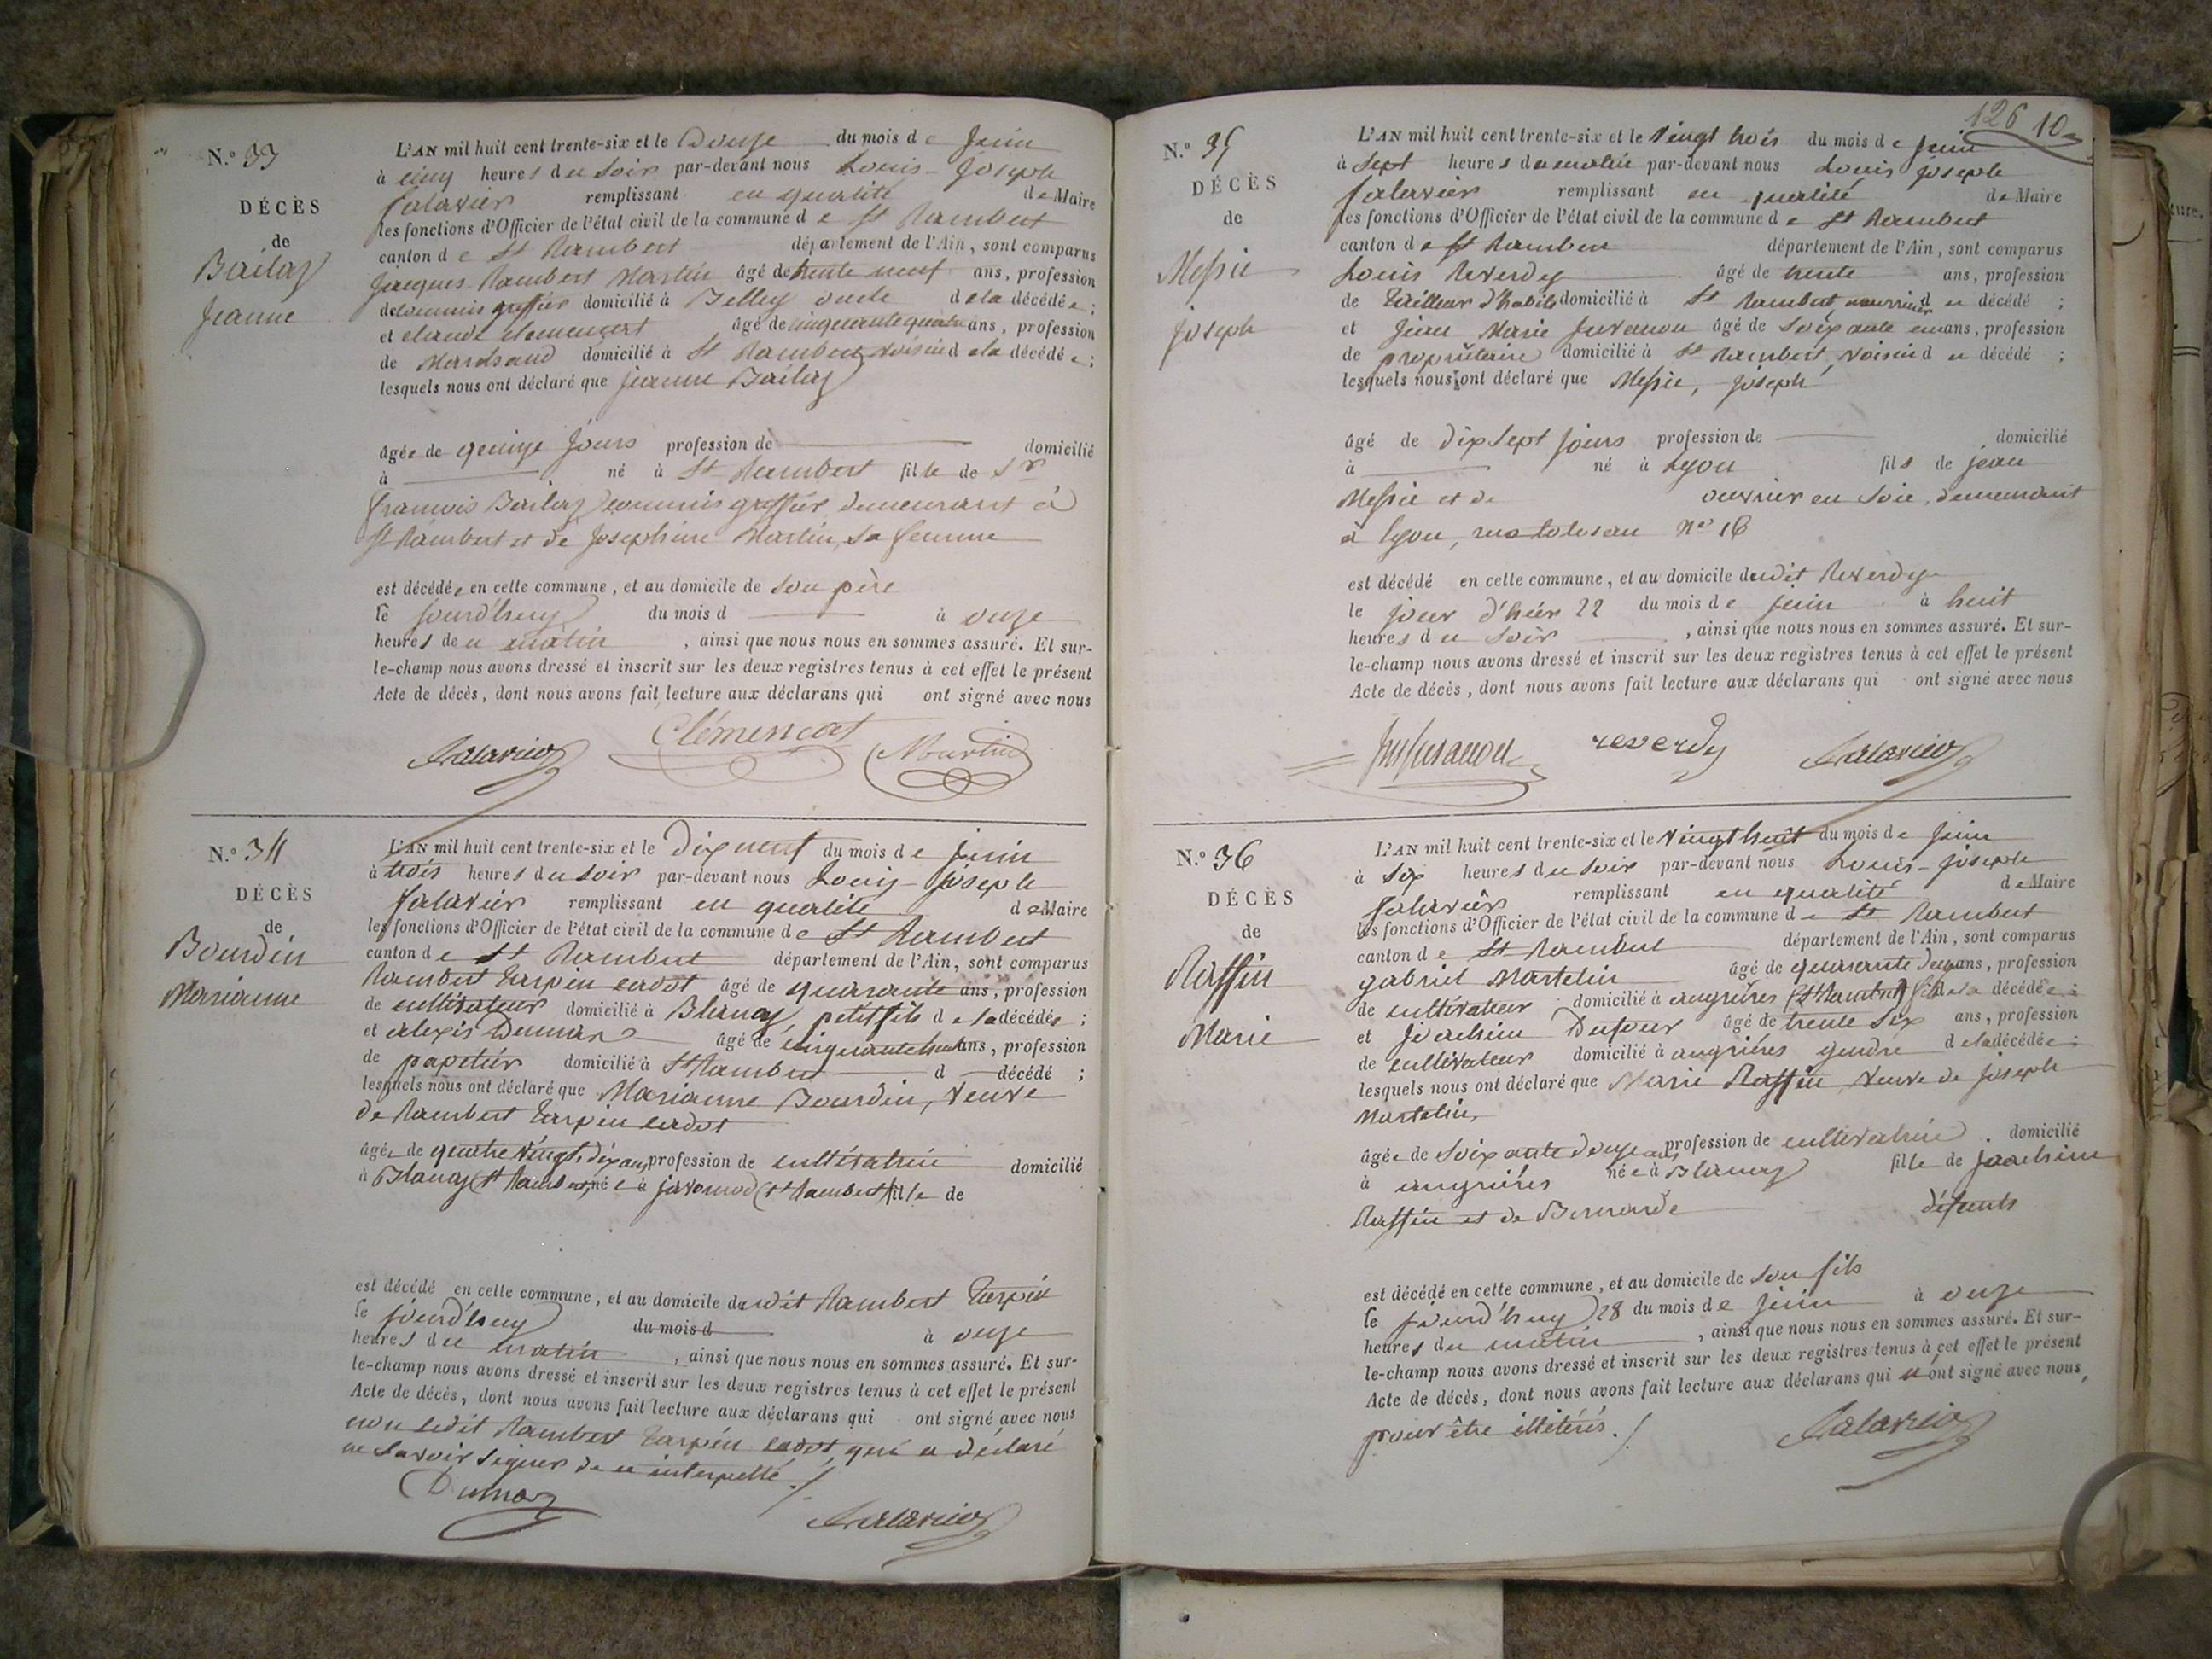 N.º 33
DÉCÈS
de
Bailly
Jeanne
L'AN mil huit cent trente-six et le Douze du mois de Juin
à cinq heures du soir par-devant nous Louis-Joseph
falavier remplissant en qualité de Maire
les fonctions d'Officier de l'état civil de la commune de St Rambert
canton de St Rambert département de l'Ain, sont comparus
Jacques Rambert Martin âgé de trente neuf ans, profession
de commis greffier domicilié à Belley oncle de la décédée;
et claude clemencat âgé de cinquante quatre ans, profession
de Marchand domicilié à St Rambert, voisin de la décédée;
lesquels nous ont déclaré que jeanne Bailly
âgée de quinze jours profession de domicilié
à né à St Rambert fille de Sr
francois Bailly commis greffier, demeurant à
St Rambert et de Josephine Martin, sa femme
est décédée en cette commune, et au domicile de son père
le jourd'huy du mois d à onze
heures du matin, ainsi que nous nous en sommes assuré. Et sur-
le-champ nous avons dressé et inscrit sur les deux registres tenus à cet effet le présent
Acte de décès, dont nous avons fait lecture aux déclarans qui ont signé avec nous
falavier Clémencat Martin
N.º 34
DÉCÈS
de
Bourdin
Marianne
L'AN mil huit cent trente-six et le Dix neuf du mois de juin
à trois heures du soir par-devant nous Louis-Joseph
falavier remplissant en qualité de Maire
les fonctions d'Officier de l'état civil de la commune de St Rambert
canton de St Rambert département de l'Ain, sont comparus
Rambert Tarpin cadot âgé de quarante ans, profession
de cultivateur domicilié à Blanaz, petit fils de la décédée;
et alexis Dumarz âgé de cinquante huit ans, profession
de papetier domicilié à St Rambert d décédé;
lesquels nous ont déclaré que Marianne Bourdin, veuve
de Rambert Tarpin cadot
âgée de quatre vingt dix ans profession de cultivatrice domicilié
à Blanaz (St Rambert) née à javornod (St Rambert) fille de
est décédé en cette commune, et au domicile dudit Rambert Tarpin
le jourd'huy du mois d à onze
heures du matin, ainsi que nous nous en sommes assuré. Et sur-
le-champ nous avons dressé et inscrit sur les deux registres tenus à cet effet le présent
Acte de décès, dont nous avons fait lecture aux déclarans qui ont signé avec nous
non ledit Rambert Tarpin cadot, qui a déclaré
ne savoir signer de ce interpellé./
Dumarz falavier
126 10
N.º 35
DÉCÈS
de
Messie
joseph
L'AN mil huit cent trente-six et le vingt trois du mois de juin
à sept heures du matin par-devant nous Louis joseph
falavier remplissant en qualité de Maire
les fonctions d'Officier de l'état civil de la commune de St Rambert
canton de St Rambert département de l'Ain, sont comparus
Louis Reverdy âgé de trente ans, profession
de tailleur d'habits domicilié à St Rambert, nourricier du décédé;
et Jean Marie Juvanon âgé de soixante un ans, profession
de propriétaire domicilié à St Rambert, voisin du décédé;
lesquels nous ont déclaré que Messie, joseph
âgé de dix sept jours profession de domicilié
à né à Lyon fils de jean
Messie et de ouvrier en soie, demeurant
à lyon, rue No 16
est décédé en cette commune, et au domicile dudit Reverdy
le jour d'hier 22 du mois de juin à huit
heures du soir, ainsi que nous nous en sommes assuré. Et sur-
le-champ nous avons dressé et inscrit sur les deux registres tenus à cet effet le présent
Acte de décès, dont nous avons fait lecture aux déclarans qui ont signé avec nous
reverdy falavier
N.º 36
DÉCÈS
de
Raffin
Marie
L'AN mil huit cent trente-six et le vingt huit du mois de juin
à six heures du soir par-devant nous Louis-joseph
falavier remplissant en qualité de Maire
les fonctions d'Officier de l'état civil de la commune de St Rambert
canton de St Rambert département de l'Ain, sont comparus
gabriel Martelin âgé de quarante deux ans, profession
de cultivateur domicilié à angrières (St Rambert) fils de la décédée;
et joachim Dufour âgé de trente six ans, profession
de cultivateur domicilié à angrières gendre de la décédée;
lesquels nous ont déclaré que Marie Raffin, veuve de joseph
Martelin,
âgée de soixante douze ans profession de cultivatrice domicilié
à angrières née à Blanaz fille de joachim
Raffin et de Bernarde défunts
est décédé en cette commune, et au domicile de son fils
le jourd'huy 28 du mois de juin à onze
heures du matin, ainsi que nous nous en sommes assuré. Et sur-
le-champ nous avons dressé et inscrit sur les deux registres tenus à cet effet le présent
Acte de décès, dont nous avons fait lecture aux déclarans qui n'ont signé avec nous,
pour être illitérés./ falavier